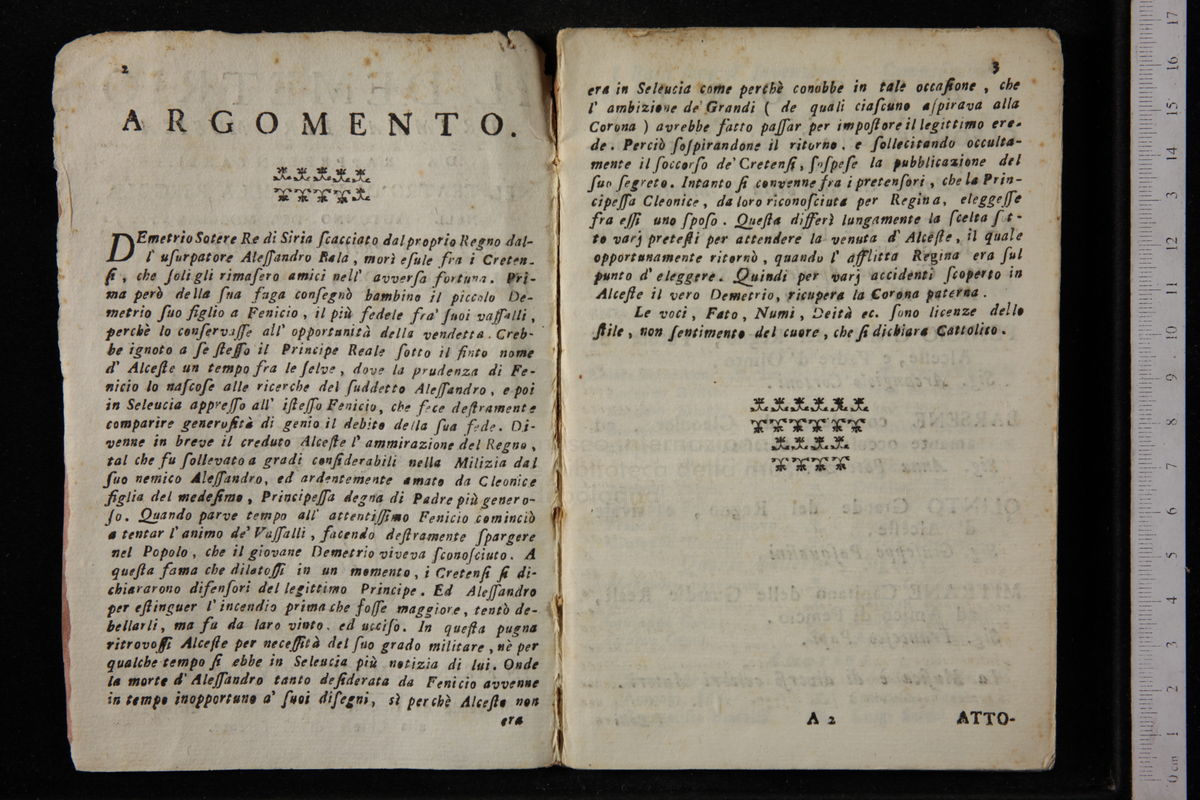 2
ARGOMENTO.
DEmetrio Sotere Re di Siria ſcacciato dal proprio Regno dal-
l' uſurpatore Aleſſandro Bala, morì eſule fra i Creten-
ſi, che ſoli gli rimaſero amici nell' avverſa fortuna. Pri-
ma però della ſua fuga conſegnò bambino il piccolo De-
metrio ſuo figlio a Fenicio, il più fedele fra' ſuoi vaſſalli,
perchè lo conſervaſſe all' opportunità della vendetta. Creb-
be ignoto a ſe ſteſſo il Principe Reale ſotto il finto nome
d' Alceſte un tempo fra le ſelve, dove la prudenza di Fe-
nicio lo naſcoſe alle ricerche del ſuddetto Aleſſandro, e poi
in Seleucia appreſſo all' iſteſſo Fenicio, che fece deſtramente
comparire generoſità di genio il debito della ſua fede. Di-
venne in breve il creduto Alceſte l' ammirazione del Regno,
tal che fu ſollevato a gradi conſiderabili nella Milizia dal
ſuo nemico Aleſſandro, ed ardentemente amato da Cleonice
figlia del medeſimo, Principeſſa degna di Padre più genero-
ſo. Quando parve tempo all' attentiſſimo Fenicio cominciò
a tentar l' animo de' Vaſſalli, facendo deſtramente ſpargere
nel Popolo, che il giovane Demetrio viveva ſconoſciuto. A
queſta fama che dilatoſſi in un momento, i Cretenſi ſi di-
chiararono difenſori del legittimo Principe. Ed Aleſſandro
per eſtinguer l' incendio prima che foſſe maggiore, tentò de-
bellarli, ma fu da laro vinto. ed ucciſo. In queſta pugna
ritrovoſſi Alceſte per neceſſità del ſuo grado militare, nè per
qualche tempo ſi ebbe in Seleucia più notizia di lui. Onde
la morte d' Aleſſandro tanto deſiderata da Fenicio avvenne
in tempo inopportuno a' ſuoi diſegni, sì perchè Alceſte non
era
3
era in Seleucia come perchè conobbe in tale occaſione, che
l' ambizione de' Grandi ( de quali ciaſcuno aſpirava alla
Corona ) avrebbe fatto paſſar per impoſtore il legittimo ere-
de. Perciò ſoſpirandone il ritorno. e ſollecitando occulta-
mente il ſoccorſo de' Cretenſi, ſoſpeſe la pubblicazione del
ſuo ſegreto. Intanto ſi convenne fra i pretenſori, che la Prin-
cipeſſa Cleonice, da loro riconoſciuta per Regina, eleggeſſe
fra eſſi uno ſpoſo. Queſta differì lungamente la ſcelta ſot-
to varj preteſti per attendere la venuta d' Alceſte, il quale
opportunamente ritornò, quando l' afflitta Regina era ſul
punto d' eleggere. Quindi per varj accidenti ſcoperto in
Alceſte il vero Demetrio, ricupera la Corona paterna.
Le voci, Fato, Numi, Deità ec. ſono licenze dello
ſtile, non ſentimento del cuore, che ſi dichiara Cattolico.
A 2
ATTO-